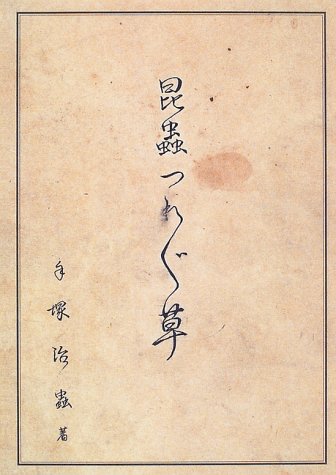 昆蟲つれ〴〵草
手塚治蟲著